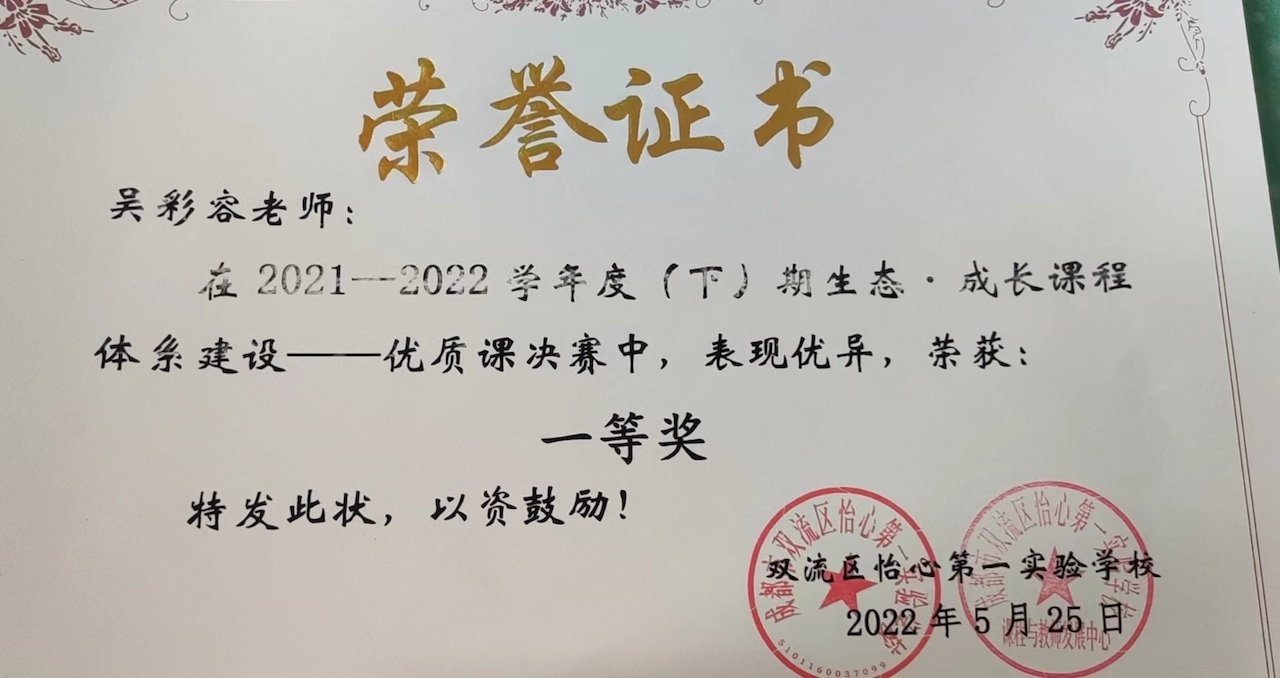 荣誉证书
吴彩容老师：
在2021—2022学年度（下）期生态·成长课程
体系建设——优质课决赛中，表现优异，荣获：
一等奖
特发此状，以资鼓励！
双流区怡心第一实验学校
2022年5月25日
成都市双流区怡心第一实验学校
5101160037099
成都市双流区怡心第一实验学校
课程与教师发展中心